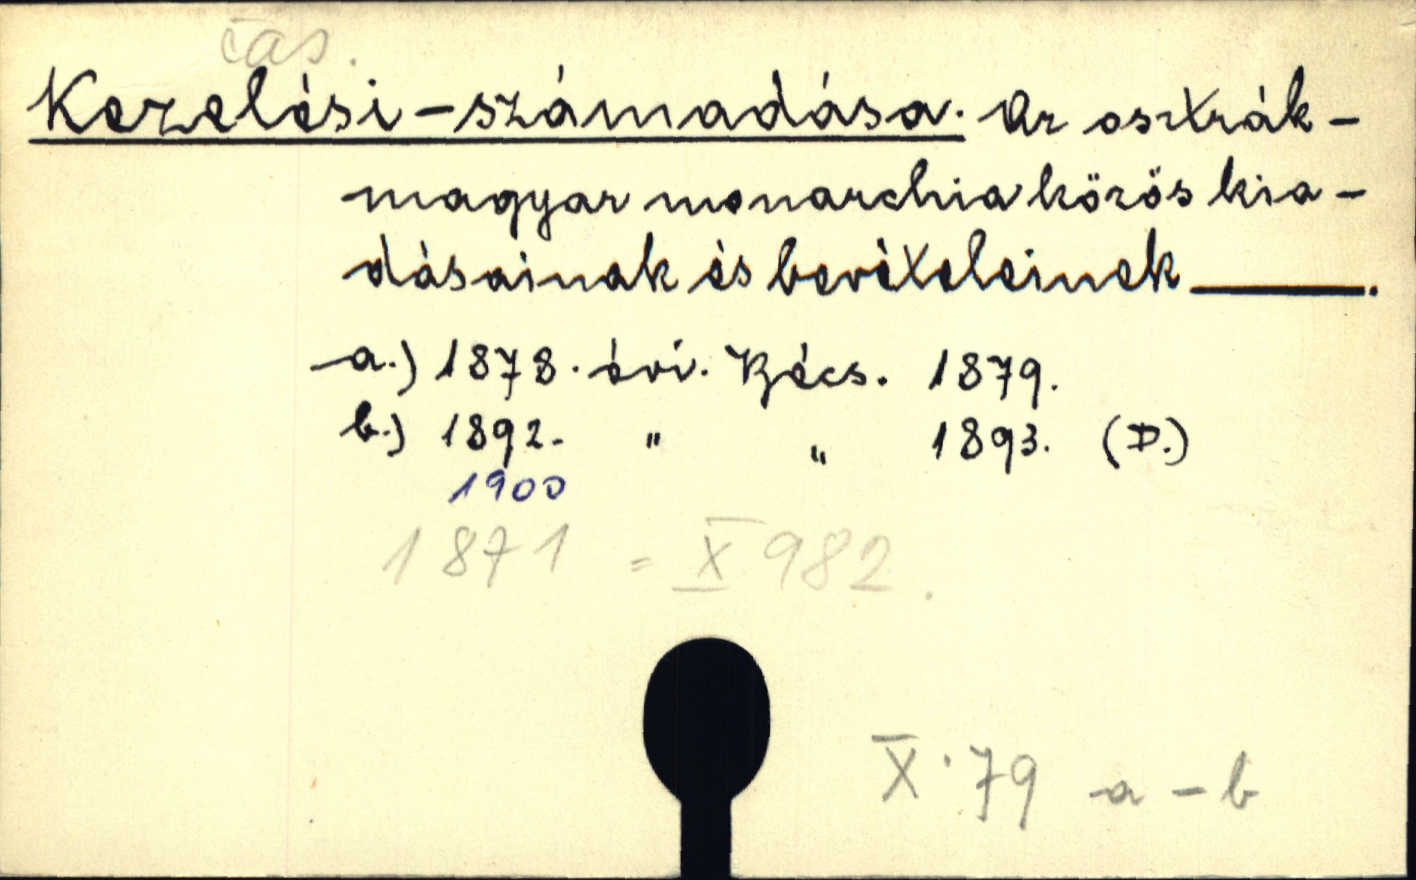 čas.
Kezelési-számadása. Az osztrák-
magyar monarchia közös kia-
dásainak és bevételeinek ______.
a.) 1878. évi. Bécs. 1879.
b.) 1892. " " 1893. (D.)
1900
1871 = X 982.
X.79 a-b